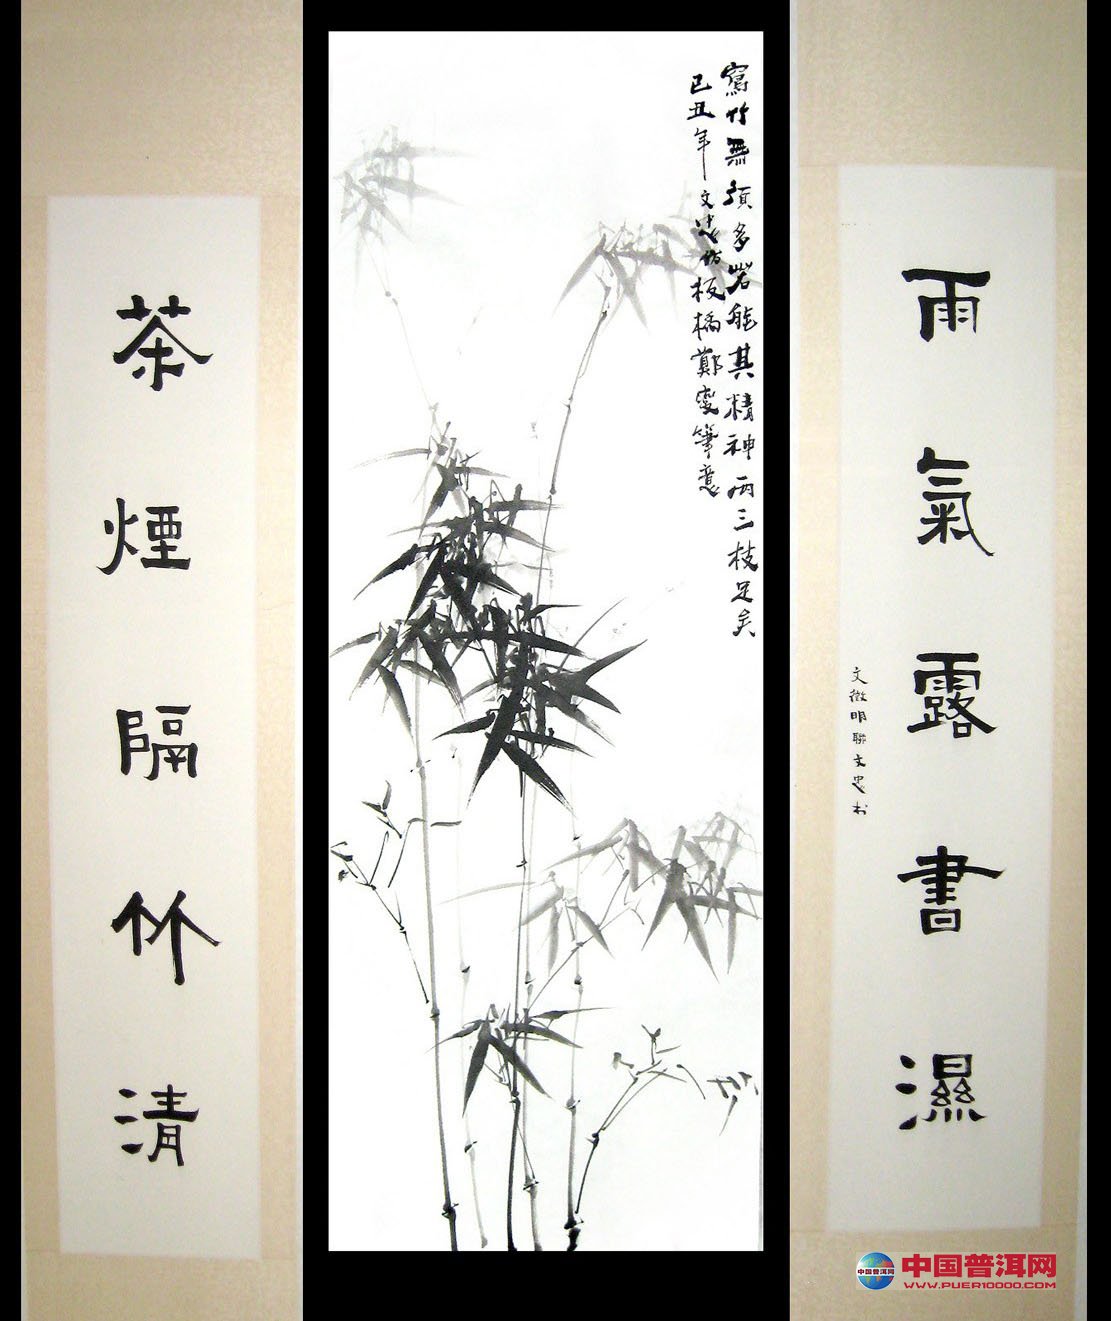 雨氣露書濕
文徵明聯文忠书
寫竹無須多若能其精神两三枝足矣
己丑年文忠仿板橋鄭燮筆意
茶煙隔竹清
中国普洱网
中国普洱网
WWW.PUER10000.COM